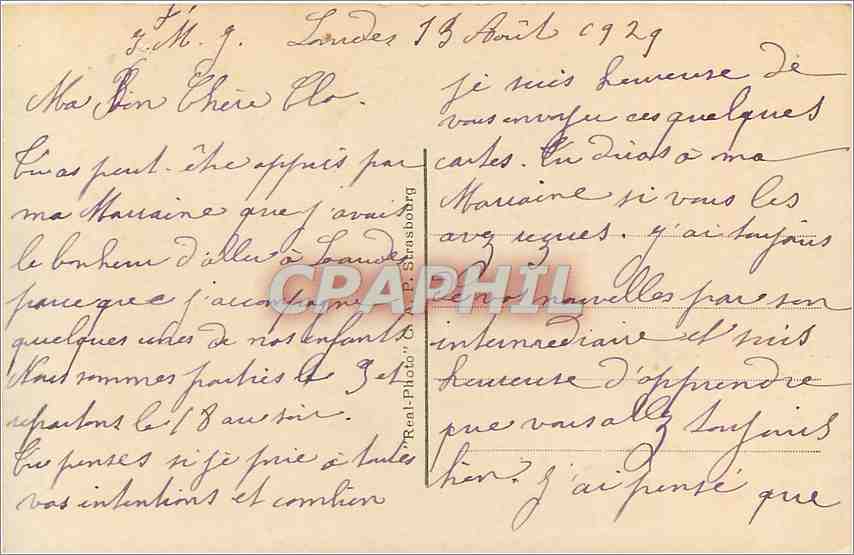 J. M. J. Lourdes 13 Août 1929
Ma Bien Chère Clo.
Tu as peut-être appris par
ma Marraine que j'avais
le bonheur d'aller à Lourdes
parce que j'accompagne
quelques unes de nos enfants
Nous sommes parties le 9 et
repartons le 18 au soir.
Tu penses si je prie à toutes
vos intentions et combien
je suis heureuse de
vous envoyer ces quelques
cartes. Tu diras à ma
Marraine si vous les
avez reçues. J'ai toujours
de vos nouvelles par son
intermédiaire et suis
heureuse d'apprendre
que vous allez toujours
bien. J'ai pensé que
"Real-Photo" C. A. P. Strasbourg
CPAPHIL